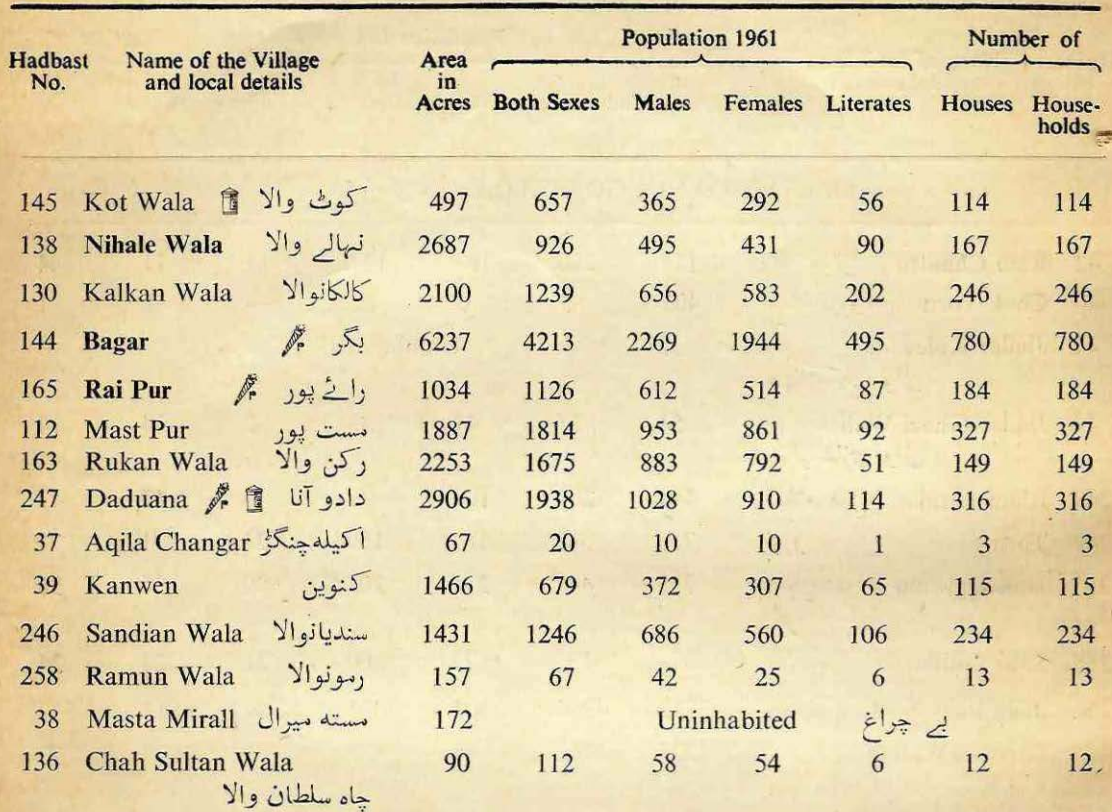 Population 1961 Number of
Hadbast No. Name of the Village and local details Area in Acres Both Sexes Males Females Literates Houses House-holds
145 Kot Wala کوٹ والا 497 657 365 292 56 114 114
138 Nihale Wala نہالے والا 2687 926 495 431 90 167 167
130 Kalkan Wala کالکانوالا 2100 1239 656 583 202 246 246
144 Bagar بگر 6237 4213 2269 1944 495 780 780
165 Rai Pur رائے پور 1034 1126 612 514 87 184 184
112 Mast Pur مست پور 1887 1814 953 861 92 327 327
163 Rukan Wala رکن والا 2253 1675 883 792 51 149 149
247 Daduana دادو آنا 2906 1938 1028 910 114 316 316
37 Aqila Changar اکیلہ چنگڑ 67 20 10 10 1 3 3
39 Kanwen کنوین 1466 679 372 307 65 115 115
246 Sandian Wala سندیانوالا 1431 1246 686 560 106 234 234
258 Ramun Wala رمونوالا 157 67 42 25 6 13 13
38 Masta Mirall مستہ میرال 172 Uninhabited بے چراغ
136 Chah Sultan Wala 90 112 58 54 6 12 12
چاہ سلطان والا